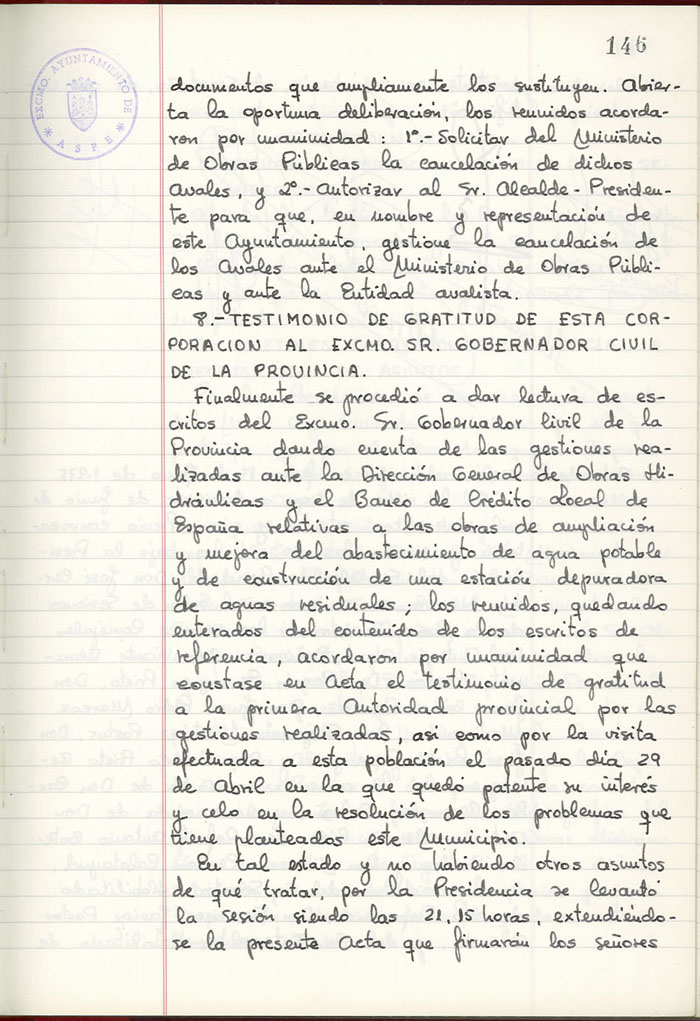 146
EXCMO. AYUNTAMIENTO DE
* ASPE *
documentos que ampliamente los sustituyen. Abier-
ta la oportuna deliberación, los reunidos acorda-
ron por unanimidad: 1º.- Solicitar del Ministerio
de Obras Públicas la cancelación de dichos
Avales, y 2º.- Autorizar al Sr. Alcalde-Presiden-
te para que, en nombre y representación de
este Ayuntamiento, gestione la cancelación de
los Avales ante el Ministerio de Obras Públi-
cas y ante la Entidad avalista.
8.- TESTIMONIO DE GRATITUD DE ESTA COR-
PORACION AL EXCMO. SR. GOBERNADOR CIVIL
DE LA PROVINCIA.
Finalmente se procedió a dar lectura de es-
critos del Excmo. Sr. Gobernador Civil de la
Provincia dando cuenta de las gestiones rea-
lizadas ante la Dirección General de Obras Hi-
dráulicas y el Banco de Crédito Local de
España relativas a las obras de ampliación
y mejora del abastecimiento de agua potable
y de construcción de una estación depuradora
de aguas residuales; los reunidos, quedando
enterados del contenido de los escritos de
referencia, acordaron por unanimidad que
constase en Acta el testimonio de gratitud
a la primera Autoridad provincial por las
gestiones realizadas, así como por la visita
efectuada a esta población el pasado día 29
de Abril en la que quedó patente su interés
y celo en la resolución de los problemas que
tiene planteados este Municipio.
En tal estado y no habiendo otros asuntos
de qué tratar, por la Presidencia se levantó
la sesión siendo las 21,15 horas, extendiéndo-
se la presente Acta que firmarán los señores